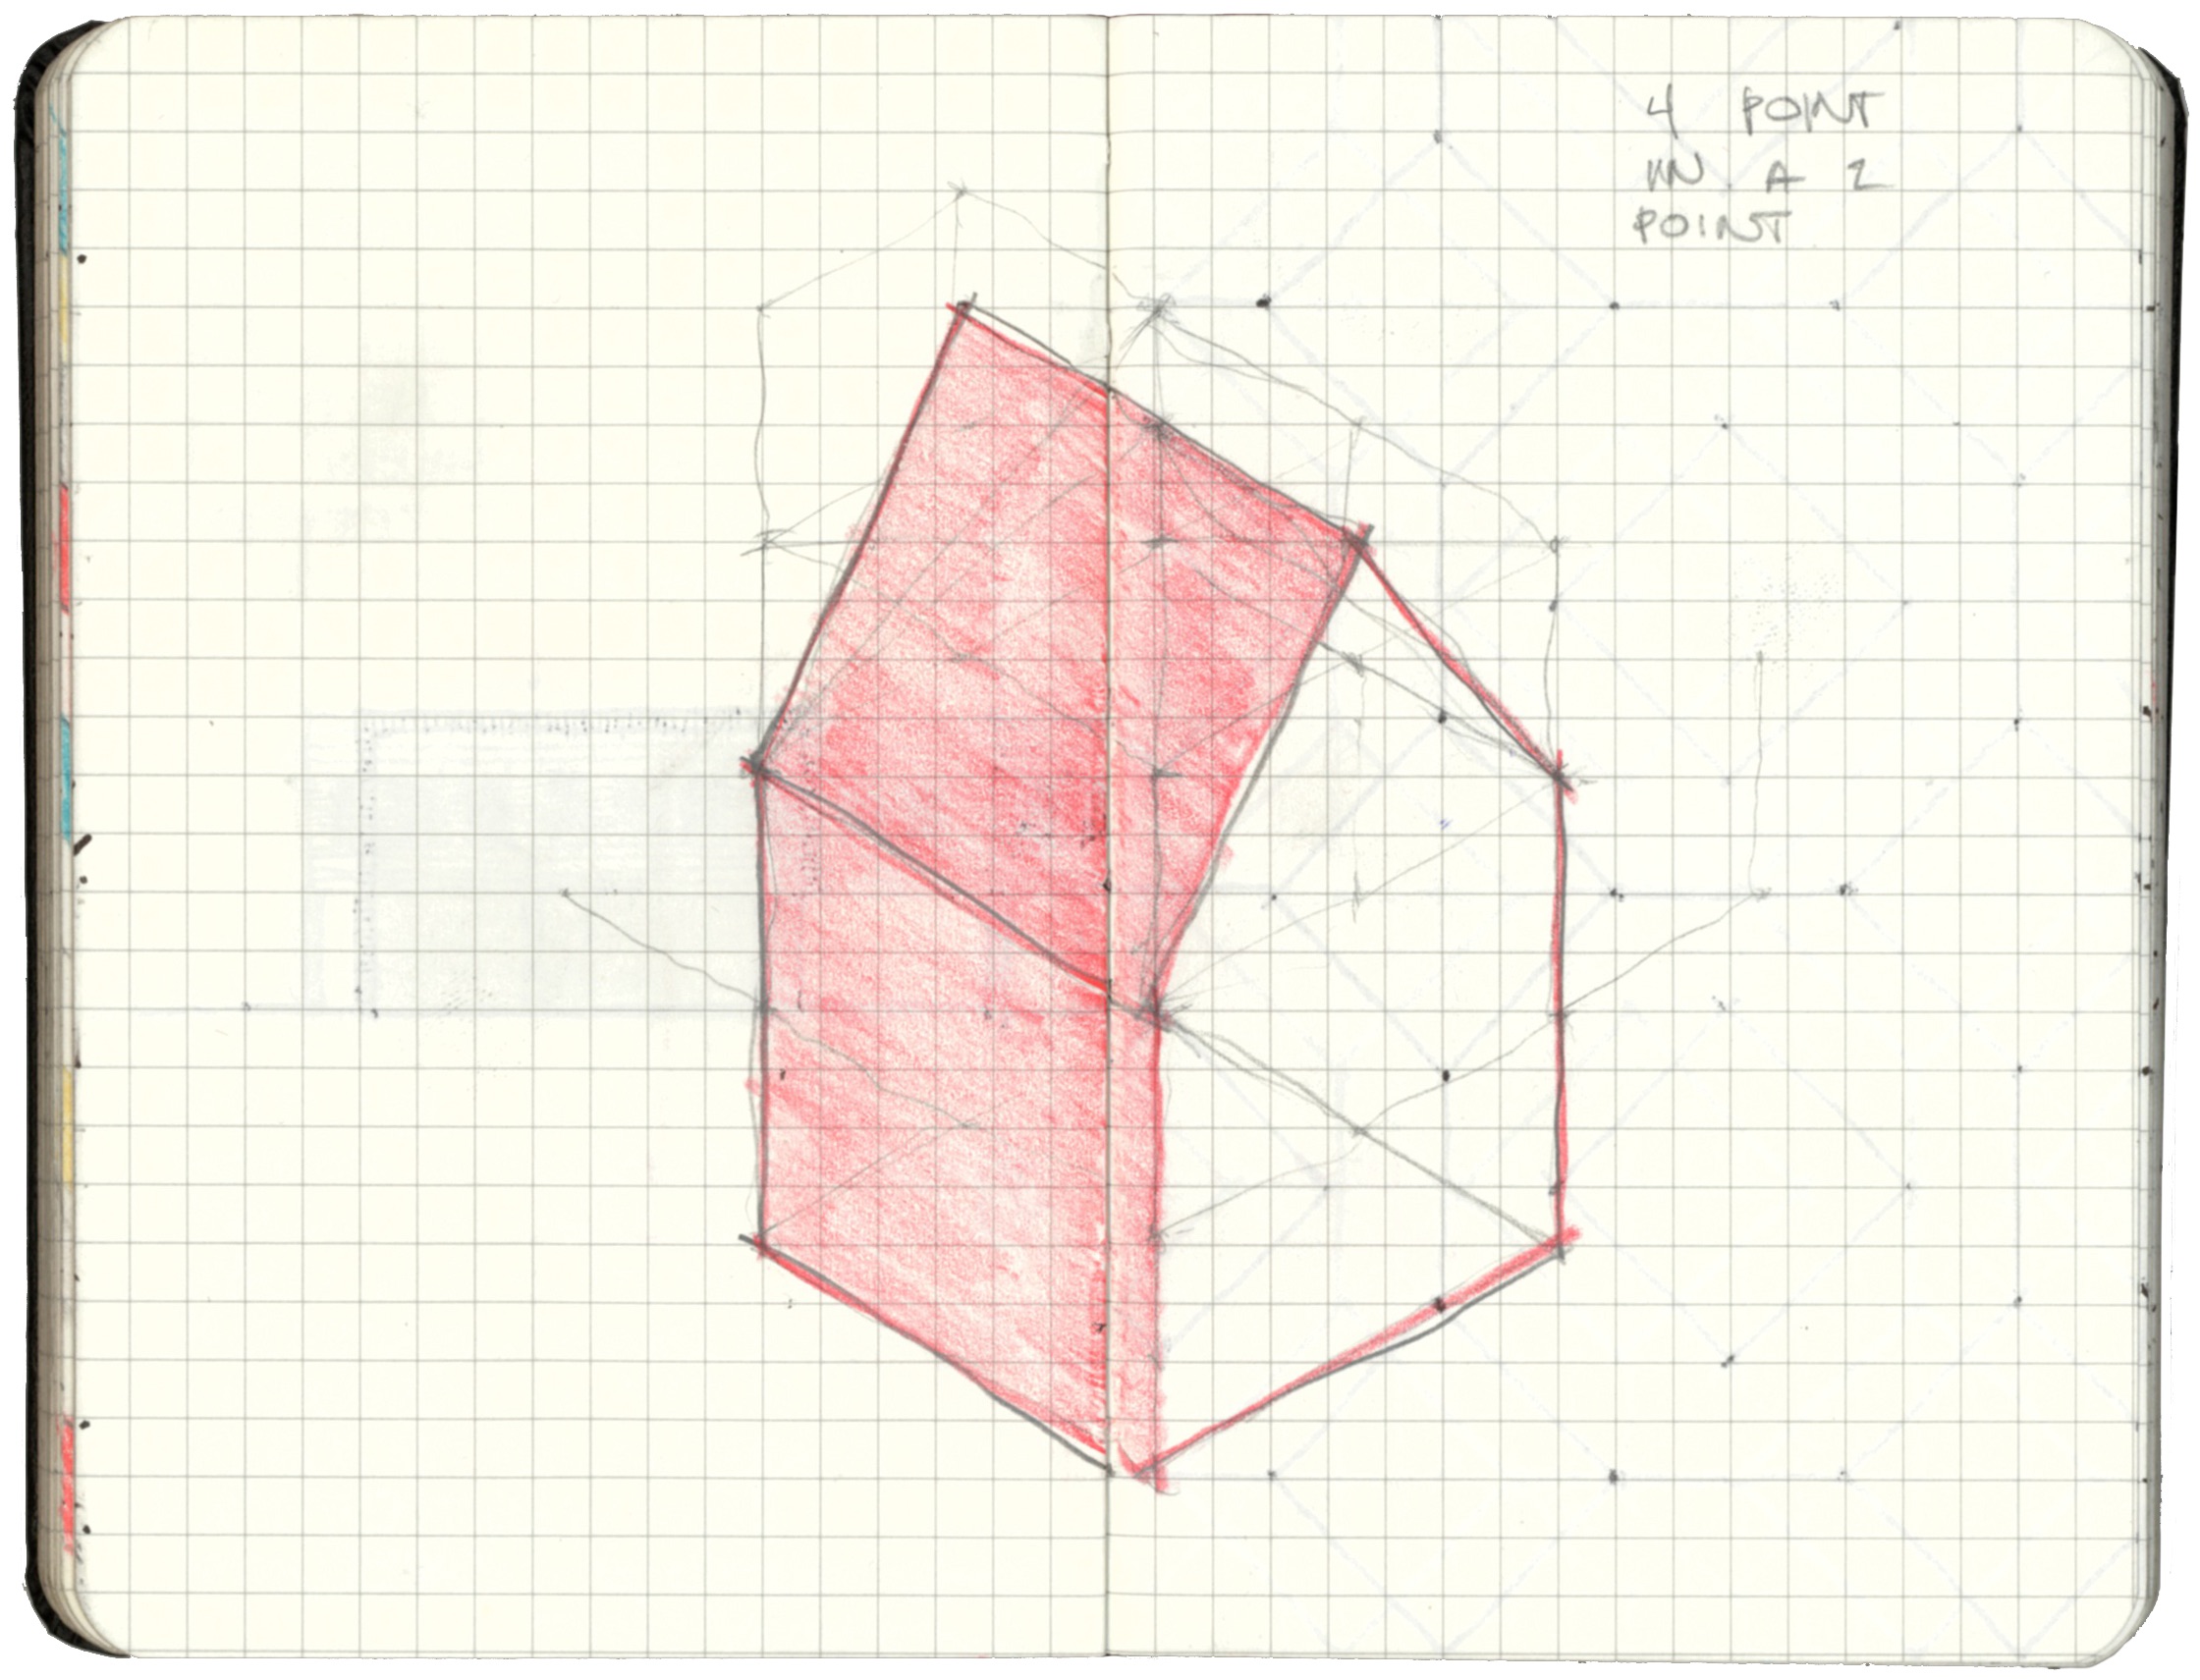 4 POINT
IN A 2
POINT